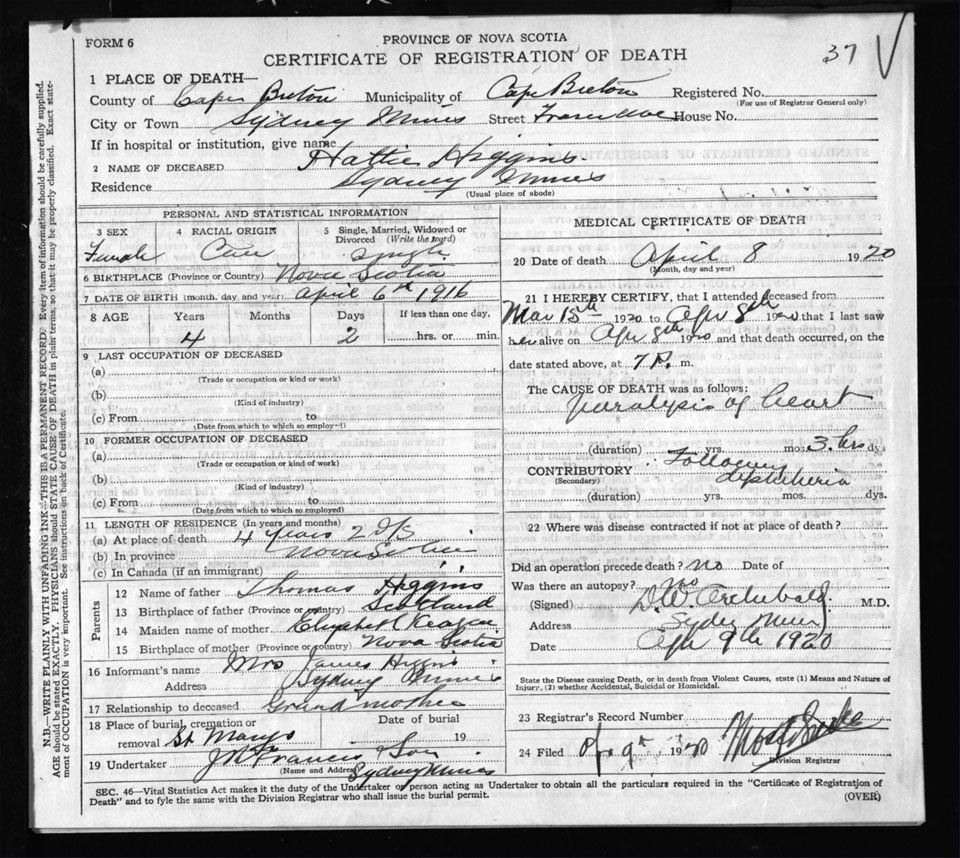 FORM 6
PROVINCE OF NOVA SCOTIA
CERTIFICATE OF REGISTRATION OF DEATH
37
1 PLACE OF DEATH—
County of Cape Breton Municipality of Cape Breton Registered No.
(For use of Registrar General only)
City or Town Sydney Mines Street Fraser Ave House No.
If in hospital or institution, give name
2 NAME OF DECEASED Hattie Higgins
Residence Sydney Mines
(Usual place of abode)
PERSONAL AND STATISTICAL INFORMATION
3 SEX 4 RACIAL ORIGIN 5 Single, Married, Widowed or Divorced (Write the word)
Female Single
6 BIRTHPLACE (Province or Country) Nova Scotia
7 DATE OF BIRTH (month, day and year) April 6th 1916
8 AGE Years Months Days If less than one day,
4 2 hrs. or min.
9 LAST OCCUPATION OF DECEASED
(a)
(Trade or occupation or kind or work)
(b)
(Kind of industry)
(c) From to
(Date from which to which so employed)
10 FORMER OCCUPATION OF DECEASED
(a)
(Trade or occupation or kind of work)
(b)
(Kind of industry)
(c) From to
(Date from which to which so employed)
11 LENGTH OF RESIDENCE (In years and months)
(a) At place of death 4 years 2 d's
(b) In province Nova Scotia
(c) In Canada (if an immigrant)
Parents
12 Name of father Thomas Higgins
13 Birthplace of father (Province or country) Scotland
14 Maiden name of mother Elizabeth
15 Birthplace of mother (Province or country) Nova Scotia
16 Informant's name Mrs James Higgins
Address Sydney Mines
17 Relationship to deceased Grand mother
18 Place of burial, cremation or Date of burial
removal St Marys 19
19 Undertaker J R Francis & Son
(Name and Address) Sydney Mines
MEDICAL CERTIFICATE OF DEATH
20 Date of death April 8 1920
(Month, day and year)
21 I HEREBY CERTIFY, that I attended deceased from
Mar 15th 1920 to Apr 8th 1920 that I last saw
her alive on Apr 8th 1920 and that death occurred, on the
date stated above, at 7 P. m.
The CAUSE OF DEATH was as follows:
paralysis of heart
(duration) yrs. mos. 3 hrs dys
CONTRIBUTORY Following diphtheria
(Secondary)
(duration) yrs. mos. dys.
22 Where was disease contracted if not at place of death?
Did an operation precede death? no Date of
Was there an autopsy? no
(Signed) D.W. Archibald M.D.
Address Sydney Mines
Date Apr 9th 1920
State the Disease causing Death, or in death from Violent Causes, state (1) Means and Nature of
Injury, (2) whether Accidental, Suicidal or Homicidal.
23 Registrar's Record Number
24 Filed Apr 9th 1920
Division Registrar
SEC. 46—Vital Statistics Act makes it the duty of the Undertaker or person acting as Undertaker to obtain all the particulars required in the "Certificate of Registration of
Death" and to fyle the same with the Division Registrar who shall issue the burial permit.
(OVER)
N.B.—WRITE PLAINLY WITH UNFADING INK—THIS IS A PERMANENT RECORD. Every item of information should be carefully supplied.
AGE should be stated EXACTLY. PHYSICIANS should STATE CAUSE OF DEATH in plain terms, so that it may be properly classified. Exact state-
ment of OCCUPATION is very important. See instructions on back of Certificate.